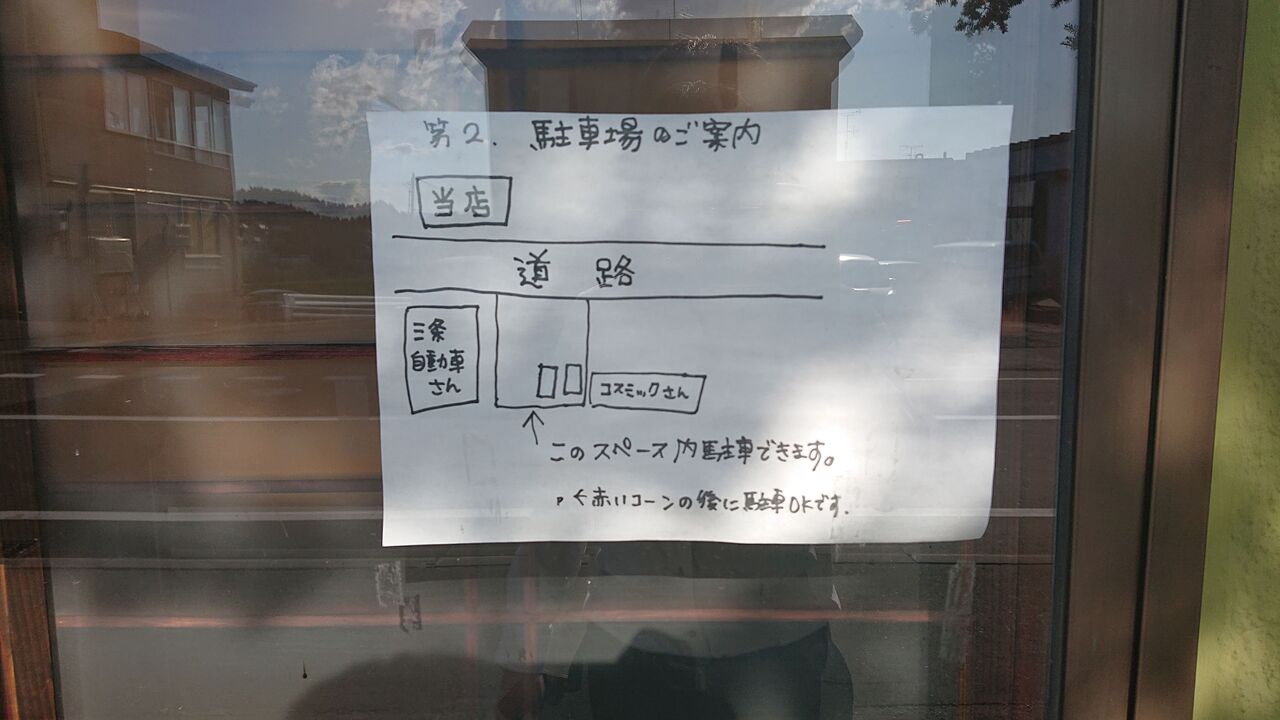 第2. 駐車場のご案内
当店
道路
三条
自動車
さん
コスミックさん
このスペース内駐車できます。
く赤いコーンの後に駐車OKです.